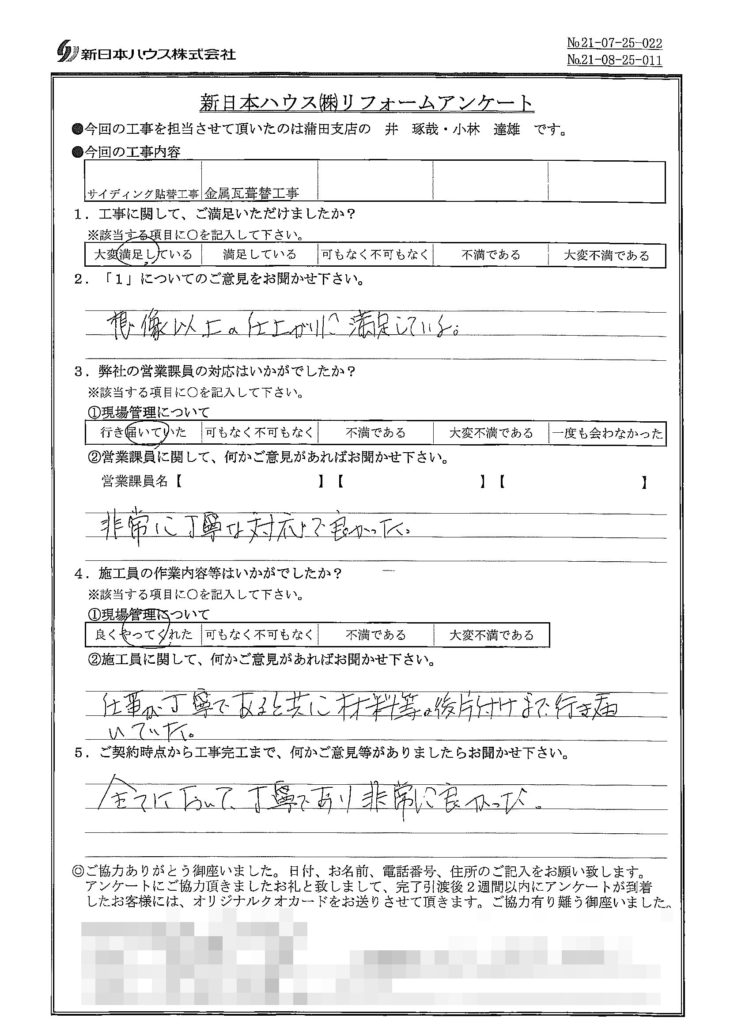 新日本ハウス株式会社
№21-07-25-022
№21-08-25-011
新日本ハウス㈱リフォームアンケート
●今回の工事を担当させて頂いたのは蒲田支店の　井　琢哉・小林　達雄　です。
●今回の工事内容
サイディング貼替工事 金属瓦葺替工事
1．工事に関して、ご満足いただけましたか？
※該当する項目に○を記入して下さい。
大変満足している 満足している 可もなく不可もなく 不満である 大変不満である
2．「1」についてのご意見をお聞かせ下さい。
想像以上の仕上がりに満足している。
3．弊社の営業課員の対応はいかがでしたか？
※該当する項目に○を記入して下さい。
①現場管理について
行き届いていた 可もなく不可もなく 不満である 大変不満である 一度も会わなかった
②営業課員に関して、何かご意見があればお聞かせ下さい。
営業課員名【　　　】【　　　】【　　　】
非常に丁寧な対応で良かった。
4．施工員の作業内容等はいかがでしたか？
※該当する項目に○を記入して下さい。
①現場管理について
良くやってくれた 可もなく不可もなく 不満である 大変不満である
②施工員に関して、何かご意見があればお聞かせ下さい。
仕事が丁寧であると共に材料等の後片付けまで行き届
いていた。
5．ご契約時点から工事完工まで、何かご意見等がありましたらお聞かせ下さい。
全てにおいて、丁寧であり非常に良かった。
◎ご協力ありがとう御座いました。日付、お名前、電話番号、住所のご記入をお願い致します。
アンケートにご協力頂きましたお礼と致しまして、完了引渡後２週間以内にアンケートが到着
したお客様には、オリジナルクオカードをお送りさせて頂きます。ご協力有り難う御座いました。